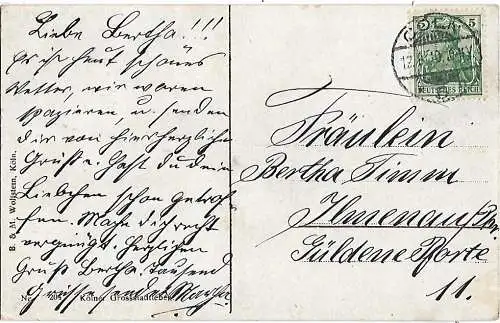 Liebe Bertha!!!
Es ist heut schönes
Wetter, wir waren
spazieren, u. senden
dir von hier herzliche
Grüße. Hast du dein
Liebchen schon getrof-
fen. Mache dich recht
vergnügt. Herzlichen
Gruß Bertha, tausend
Grüsse sendet Martha
B. & M. Wollstein, Köln.
Kölner Grossstadtleben
5 5
DEUTSCHES REICH
Fräulein
Bertha Timm
Ilmenau
Güldene Pforte
11.